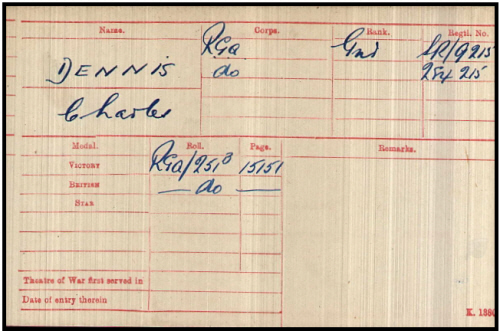 Name. Corps. Rank. Regtl. No.
RGA Gnr SR/9215
DENNIS do 284215
Charles
Medal. Roll. Page. Remarks.
VICTORY RGA/251B 15151
BRITISH — do —
STAR
Theatre of War first served in
Date of entry therein
K. 1380